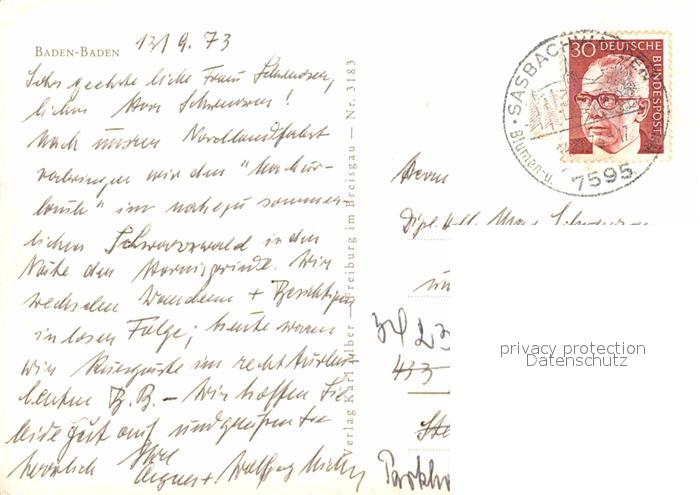 BADEN-BADEN
13/9.73
Sehr geehrte liebe Frau
lieber Herr
Nach unserer Nordlandfahrt
verbringen wir den "Nachur-
laub" im nahezu sommer-
lichen Schwarzwald in der
Nähe der Hornisgrinde. Wir
wechseln Wandern + Besichtigen
in loser Folge; heute waren
wir Kurgäste im
B.B. – Wir hoffen Sie
beide gut auf und grüßen Sie
herzlich Ihre
Agnes + Wolfgang
Verlag Karl Alber – Freiburg im Breisgau – Nr. 3183
SASBACHWALDEN
Blumen- u.
7595
30 DEUTSCHE
BUNDESPOST
Herrn
Dipl.
433
privacy protection
Datenschutz